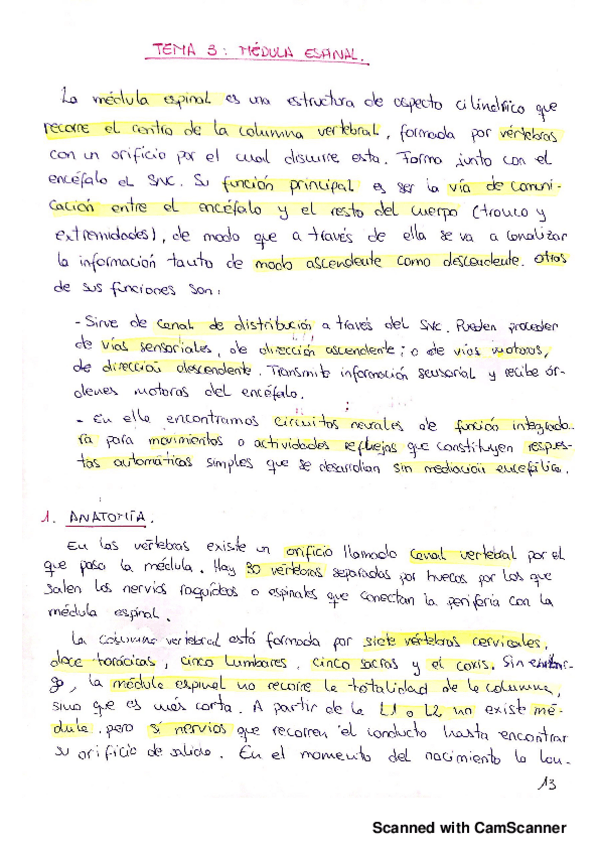 TEMA 3: MÉDULA ESPINAL.
La médula espinal es una estructura de aspecto cilíndrico que
recorre el centro de la columna vertebral, formada por vértebras
con un orificio por el cual discurre esta. Forma junto con el
encéfalo el SNC. Su función principal es ser la vía de comuni-
cación entre el encéfalo y el resto del cuerpo (tronco y
extremidades), de modo que a través de ella se va a canalizar
la información tanto de modo ascendente como descendente. Otras
de sus funciones son:
- Sirve de canal de distribución a través del SNC. Pueden proceder
de vías sensoriales, de dirección ascendente; o de vías motoras,
de dirección descendente. Transmite información sensorial y recibe ór-
denes motoras del encéfalo.
- En ella encontramos circuitos neurales de función integrado-
ra para movimientos o actividades reflejas que constituyen respues-
tas automáticas simples que se desarrollan sin mediación encefálica.
1. ANATOMÍA.
En las vértebras existe un orificio llamado canal vertebral por el
que pasa la médula. Hay 30 vértebras separadas por huecos por los que
salen los nervios raquídeos o espinales que conectan la periferia con la
médula espinal.
La columna vertebral está formada por siete vértebras cervicales,
doce torácicas, cinco lumbares, cinco sacras y el coxis. Sin embar-
go, la médula espinal no recorre la totalidad de la columna,
sino que es más corta. A partir de la L1 o L2 no existe mé-
dula, pero sí nervios que recorren el conducto hasta encontrar
su orificio de salida. En el momento del nacimiento la lon-
13
Scanned with CamScanner